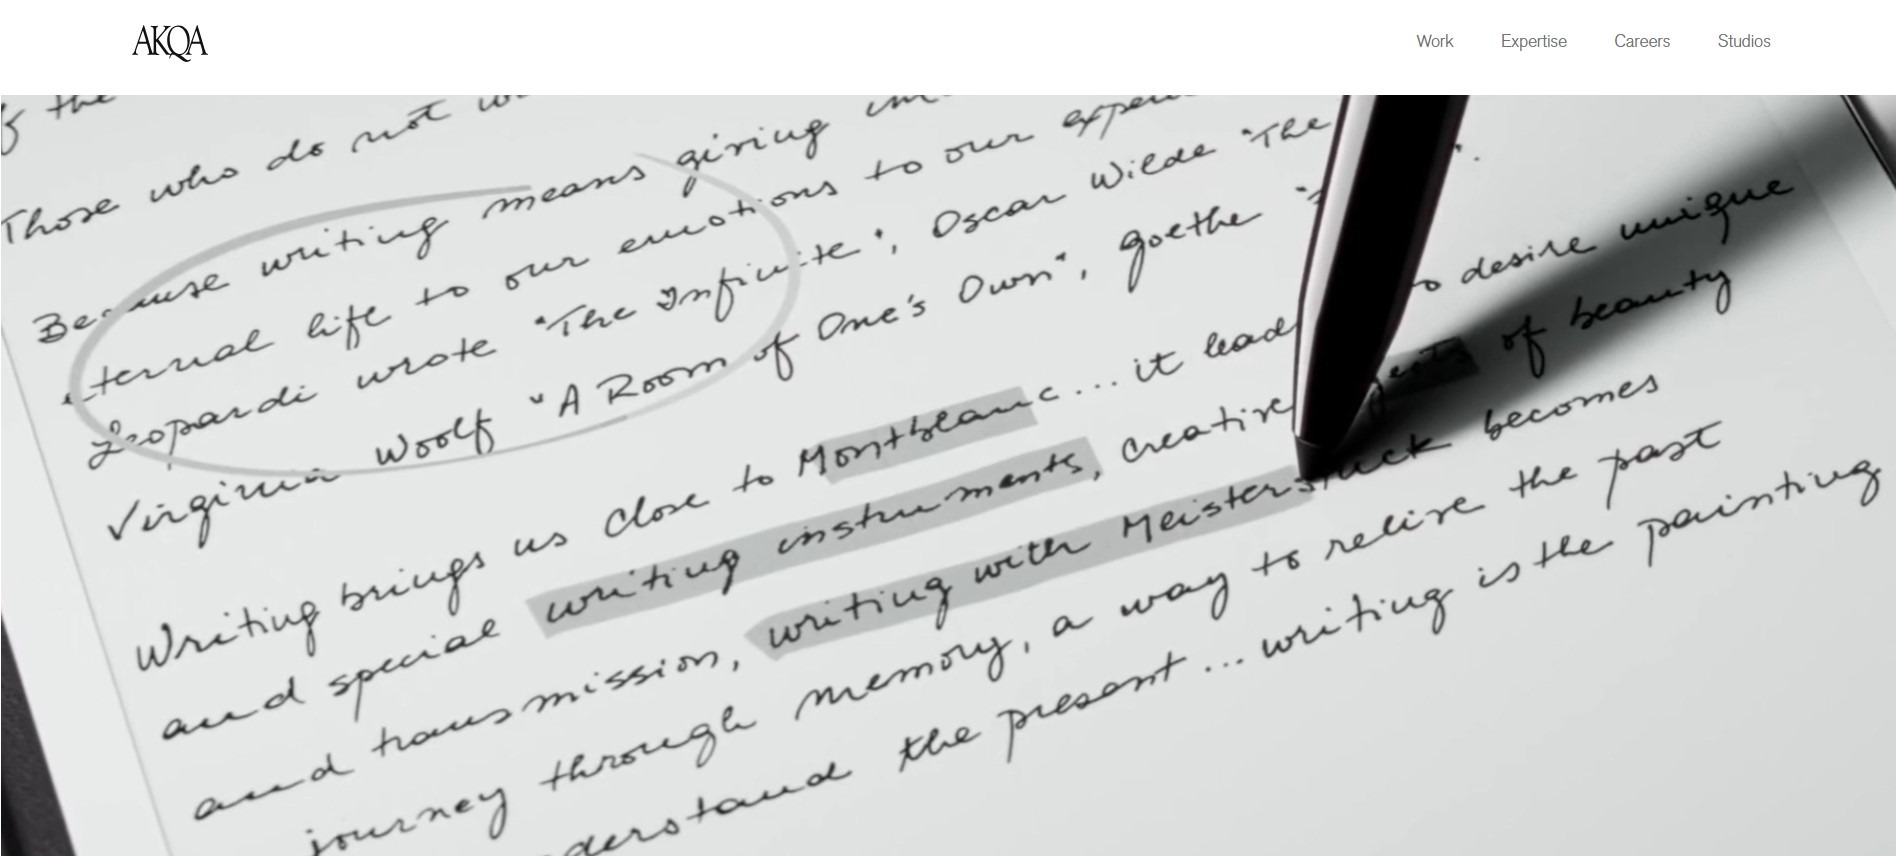 AKQA
Work Expertise Careers Studios
of the
Those who do not
Because writing means giving
eternal life to our emotions to our
Leopardi wrote "The Infinite", Oscar Wilde "The
Virginia Woolf "A Room of One's Own", goethe
Writing brings us close to Montblanc... it leads to desire unique
and special writing instruments, creative of beauty
and transmission, writing with Meisterstuck becomes
journey through memory, a way to relive the past
the present... writing is the painting